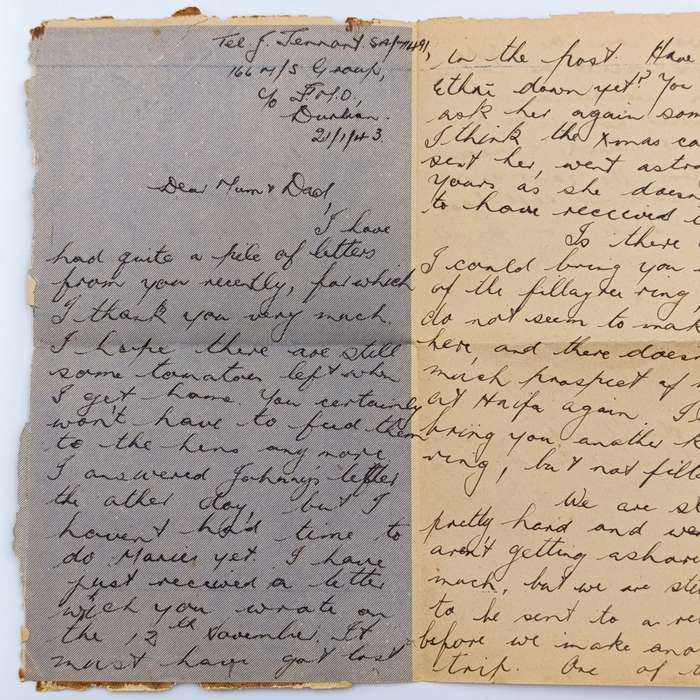 Tel J. Tennant SA/71491,
166 M/S Group,
c/o F.M.O,
Durban.
21/1/43.
Dear Mum & Dad,
I have
had quite a pile of letters
from you recently, for which
I thank you very much.
I hope there are still
some tomatoes left when
I get home. You certainly
won't have to feed them
to the hens any more.
I answered Johnny's letter
the other day, but I
haven't had time to
do Maries yet. I have
just received a letter
which you wrote on
the 12th November. It
must have got lost
in the post. Have
Ethne down yet? You
ask her again som
I think the Xmas ca
sent her, went astra
yours as she doesn
to have received
Is there
I could bring you
of the fillagree ring
do not seem to ma
here, and there does
much prospect of
at Haifa again. I
bring you another
ring, but not fill
We are st
pretty hard and we
aren't getting ashor
much, but we are st
to be sent to a re
before we make ano
trip. One of